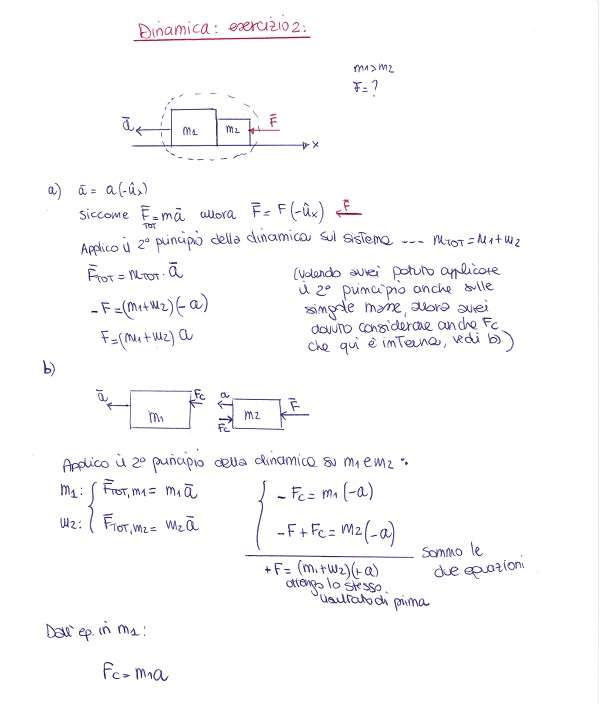 Dinamica: esercizio 2:
m1>m2
F=?
ā
m1
m2
F̄
x
a) ā = a(-ûx)
Siccome F̄TOT=mā allora F̄= F(-ûx) F̄
Applico il 2° principio della dinamica sul sistema --- mTOT=m1+m2
F̄TOT=mTOT·ā
-F=(m1+m2)(-a)
F=(m1+m2)a
(Volendo avrei potuto applicare
il 2° principio anche sulle
singole masse, allora avrei
dovuto considerare anche Fc
che qui è interna, vedi b))
b)
ā
m1
Fc
a
Fc
m2
F̄
Applico il 2° principio della dinamica su m1 e m2:
m1: F̄TOT,m1= m1ā
m2: F̄TOT,m2= m2ā
-Fc=m1(-a)
-F+Fc=m2(-a)
+F=(m1+m2)(+a)
sommo le
due equazioni
ottengo lo stesso
risultato di prima
Dall'eq. in m1:
Fc=m1a